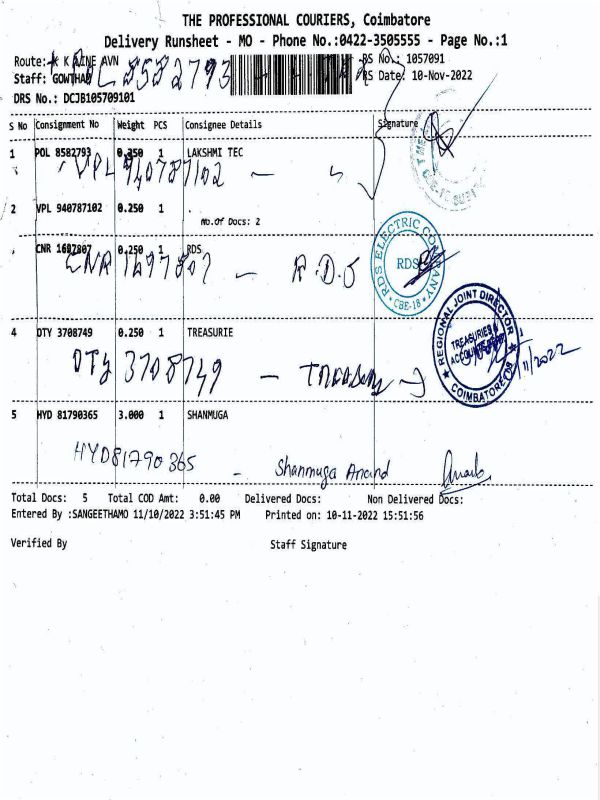 THE PROFESSIONAL COURIERS, Coimbatore
Delivery Runsheet - MO - Phone No.:0422-3505555 - Page No.:1
Route: K K AVN RS No.: 1057091
Staff: GOWTHAM RS Date: 10-Nov-2022
8582793
DRS No.: DCJB105709101
S No Consignment No Weight PCS Consignee Details Signature
1 POL 8582793 0.350 1 LAKSHMI TEC
VPL 940787102 —
2 VPL 940787102 0.250 1
No.Of Docs: 2
CNR 1697807 0.250 1 RDS
CNR 1697807 — R.D.S
RDS ELECTRIC COMPANY
RDS
CBE-18
4 DTY 3708749 0.250 1 TREASURIE
DTY 3708749 — Treasury
REGIONAL JOINT DIRECTOR
TREASURIES &
COIMBATORE
11/2022
5 HYD 81790365 3.000 1 SHANMUGA
HYD81790365 - Shanmuga Anand
Total Docs: 5 Total COD Amt: 0.00 Delivered Docs: Non Delivered Docs:
Entered By :SANGEETHAMO 11/10/2022 3:51:45 PM Printed on: 10-11-2022 15:51:56
Verified By Staff Signature